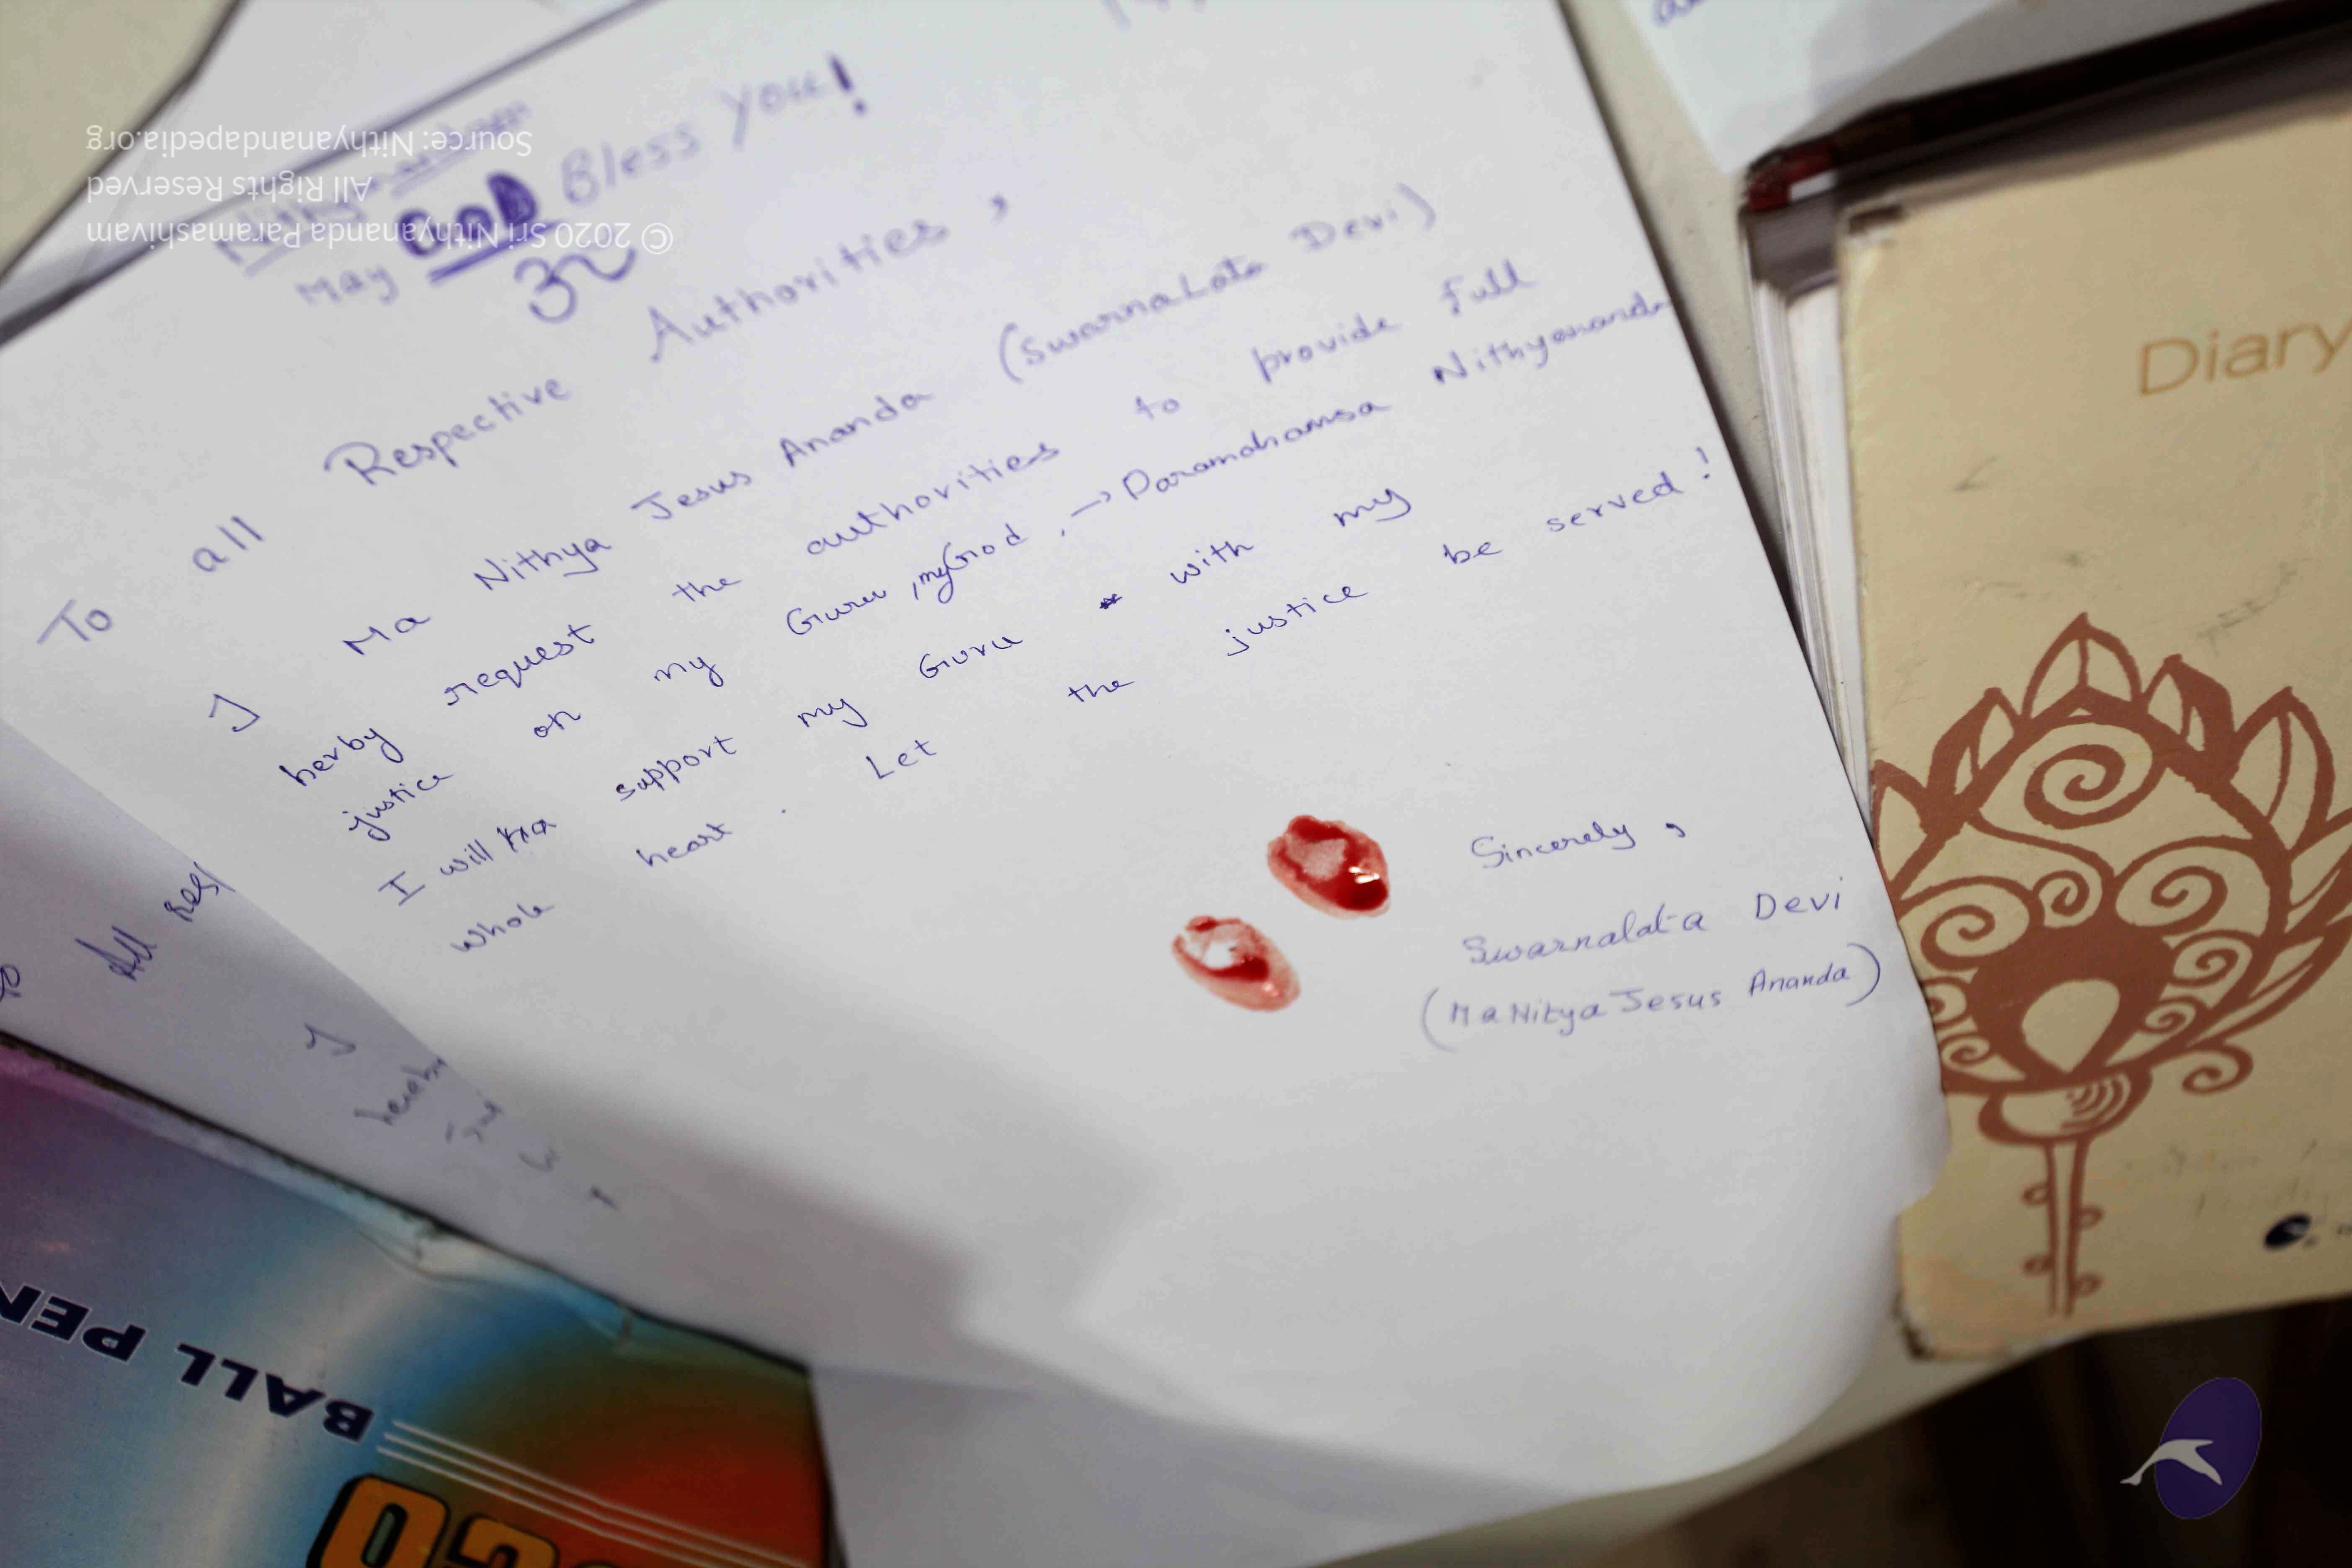 Nithyanandam
May GOD Bless You!
ॐ
To all Respective Authorities,
I Ma Nithya Jesus Ananda (Swarnalata Devi)
herby request the authorities to provide full
justice on my Guru, my God, → Paramahamsa Nithyananda
I will support my Guru with my
whole heart. Let the justice be served!
Sincerely,
Swarnalata Devi
(Ma Nitya Jesus Ananda)
All
I
Diary
BALL PEN
© 2020 Sri Nithyananda Paramashivam
All Rights Reserved
Source: Nithyanandapedia.org